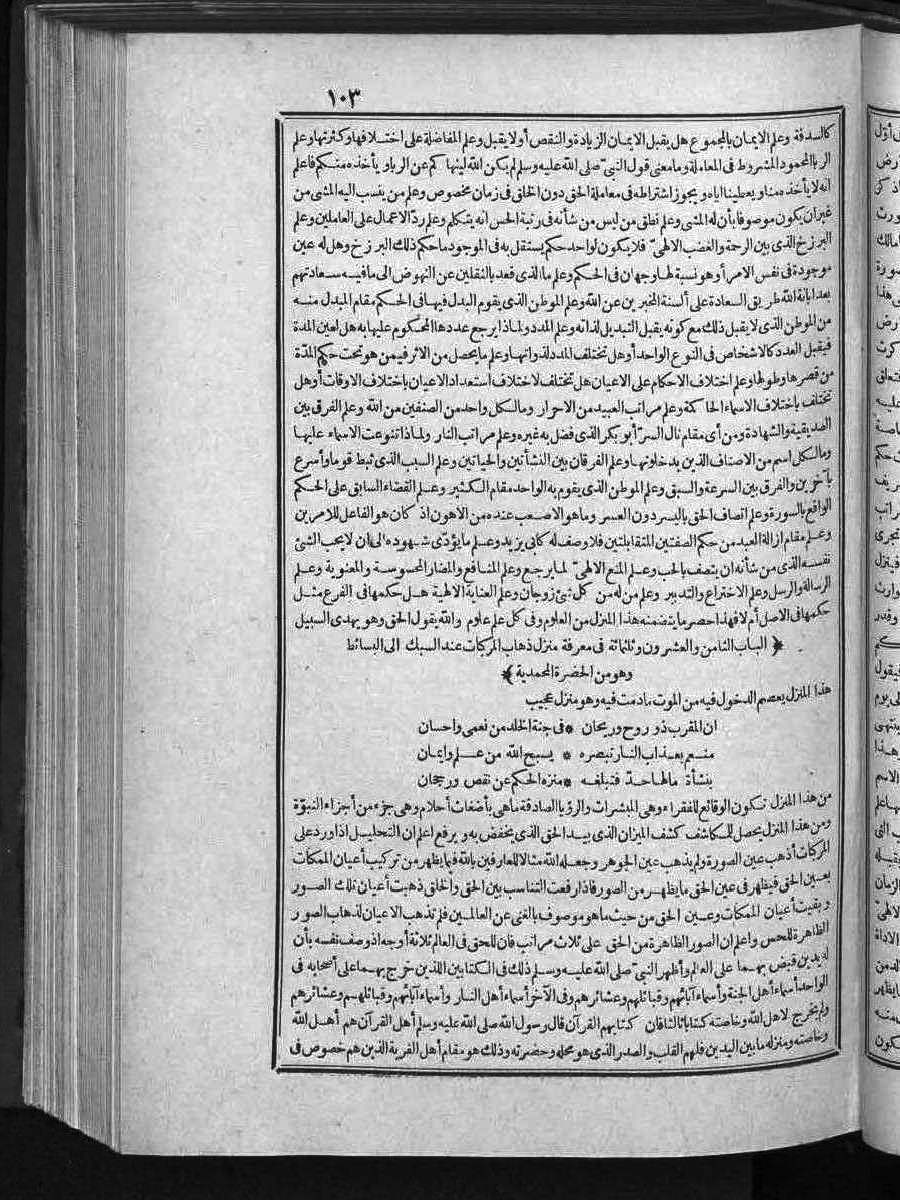 ١٠٣
كالصدقة وعلم الايمان بالمجموع هل يقبل الايمان الزيادة والنقص أولا يقبل وعلم المفاضلة على اختلافها وكثرتها وعلم
الربا المحمود المشروط فى المعاملة وما معنى قول النبىّ صلى الله عليه وسلم لم يكن الله لينهاكم عن الربا ويأخذه منكم فاعلم
انه لا يأخذه منا ويعطينا اياه ويجوز اشتراطه فى معاملة الحق دون الخلق فى زمان مخصوص وعلم من ينسب اليه المشى من
غير ان يكون موصوفا بأن له المشى وعلم نطق من ليس من شأنه فى رتبة الحس انه يتكلم وعلم ردّ الاعمال على العاملين وعلم
البرزخ الذى بين الرحمة والغضب الالهىّ فلا يكون لواحد حكم يستقل به فى الموجود ما حكم ذلك البرزخ وهل له عين
موجودة فى نفس الامر أو هو نسبة لها وجهان فى الحكم وعلم ما الذى قعد بالثقلين عن النهوض الى ما فيه سعادتهم
بعد ابانة الله طريق السعادة على ألسنة المخبرين عن الله وعلم الموطن الذى يقوم البدل فيها فى الحكم مقام المبدل منه
من الموطن الذى لا يقبل ذلك مع كونه يقبل التبديل لذاته وعلم المدد ولماذا يرجع عددها المحكوم عليها به هل لعين المدة
فيقبل العدد كالاشخاص فى النوع الواحد أو هل تختلف المدد لذواتها وعلم ما يحصل من الاثر فيمن هو تحت حكم المدّة
من قصرها وطولها وعلم اختلاف الاحكام على الاعيان هل تختلف لاختلاف استعداد الاعيان باختلاف الاوقات أو هل
تختلف باختلاف الاسماء الحاكمة وعلم مراتب العبيد من الاحرار وما لكل واحد من الصنفين من الله وعلم الفرق بين
الصديقية والشهادة ومن أى مقام نال السرّ أبو بكر الذى فضل به غيره وعلم مراتب النار ولماذا تنوعت الاسماء عليها
وما لكل اسم من الاصناف الذين يدخلونها وعلم الفرقان بين النشأتين والحياتين وعلم السبب الذى ثبط قوما وأسرع
بآخرين والفرق بين السرعة والسبق وعلم الموطن الذى يقوم به الواحد مقام الكثير وعلم القضاء السابق على الحكم
الواقع بالسورة وعلم اتصاف الحق باليسر دون العسر وما هو الاصعب عنده من الاهون اذ كان هو الفاعل للامرين
وعلم مقام ازالة العبد من حكم الصفتين المتقابلتين فلا وصف له كأبى يزيد وعلم ما يؤدّى شهوده الى ان لا يحب الشئ
نفسه الذى من شأنه ان يتصف بالحب وعلم المنع الالهىّ لما يرجع وعلم المنافع والمضار المحسوسة والمعنوية وعلم
الرسالة والرسل وعلم الاختراع والتدبير وعلم من له من كل شئ زوجان وعلم العناية الالهية هل حكمها فى الفرع مثل
حكمها فى الاصل أم لا فهذا حصر ما يتضمنه هذا المنزل من العلوم وفى كل علم علوم والله يقول الحق وهو يهدى السبيل
﴿ الباب الثامن والعشرون وثلثمائة فى معرفة منزل ذهاب المركبات عند السبك الى البسائط
وهو من الحضرة المحمدية ﴾
هذا المنزل يعصم الدخول فيه من الموت ما دمت فيه وهو منزل عجيب
ان المقرب ذو روح وريحان * فى جنة الخلد من نعمى واحسان
منعم بعذاب النار تبصره * يسبح الله من علم وايمان
بنشأة مالها حدّ فتبلغه * منزه الحكم عن نقص ورجحان
من هذا المنزل تكون الوقائع للفقراء وهى المبشرات والرؤيا الصادقة ما هى بأضغاث أحلام وهى جزء من أجزاء النبوّة
ومن هذا المنزل يحصل للمكاشف كشف الميزان الذى بيد الحق الذى يخفض به ويرفع اعلم ان التحليل اذا ورد على
المركبات أذهب عين الصورة ولم يذهب عين الجوهر وجعله الله مثالا للعارفين بالله فيما يظهر من تركيب أعيان الممكنات
بعين الحق فيظهر فى عين الحق ما يظهر من الصور فاذا رفعت التناسب بين الحق والخلق ذهبت أعيان تلك الصور
وبقيت أعيان الممكنات وعين الحق من حيث ما هو موصوف بالغنى عن العالمين فلم تذهب الاعيان لذهاب الصور
الظاهرة للحس واعلم ان الصور الظاهرة من الحق على ثلاث مراتب فان للحق فى العالم ثلاثة أوجه اذ وصف نفسه بأن
له يدين قبض بهما على العالم وأظهر النبىّ صلى الله عليه وسلم ذلك فى الكتابين اللذين خرج بهما على أصحابه فى
الواحد أسماء أهل الجنة وأسماء آبائهم وقبائلهم وعشائرهم وفى الآخر أسماء أهل النار وأسماء آبائهم وقبائلهم وعشائرهم
ولم يخرج لاهل الله وخاصته كتابا ثالثا فان كتابهم القرآن قال رسول الله صلى الله عليه وسلم أهل القرآن هم أهل الله
وخاصته ومنزله ما بين اليدين فلهم القلب والصدر الذى هو محله وحضرته وذلك هو مقام أهل القربة الذين هم خصوص فى